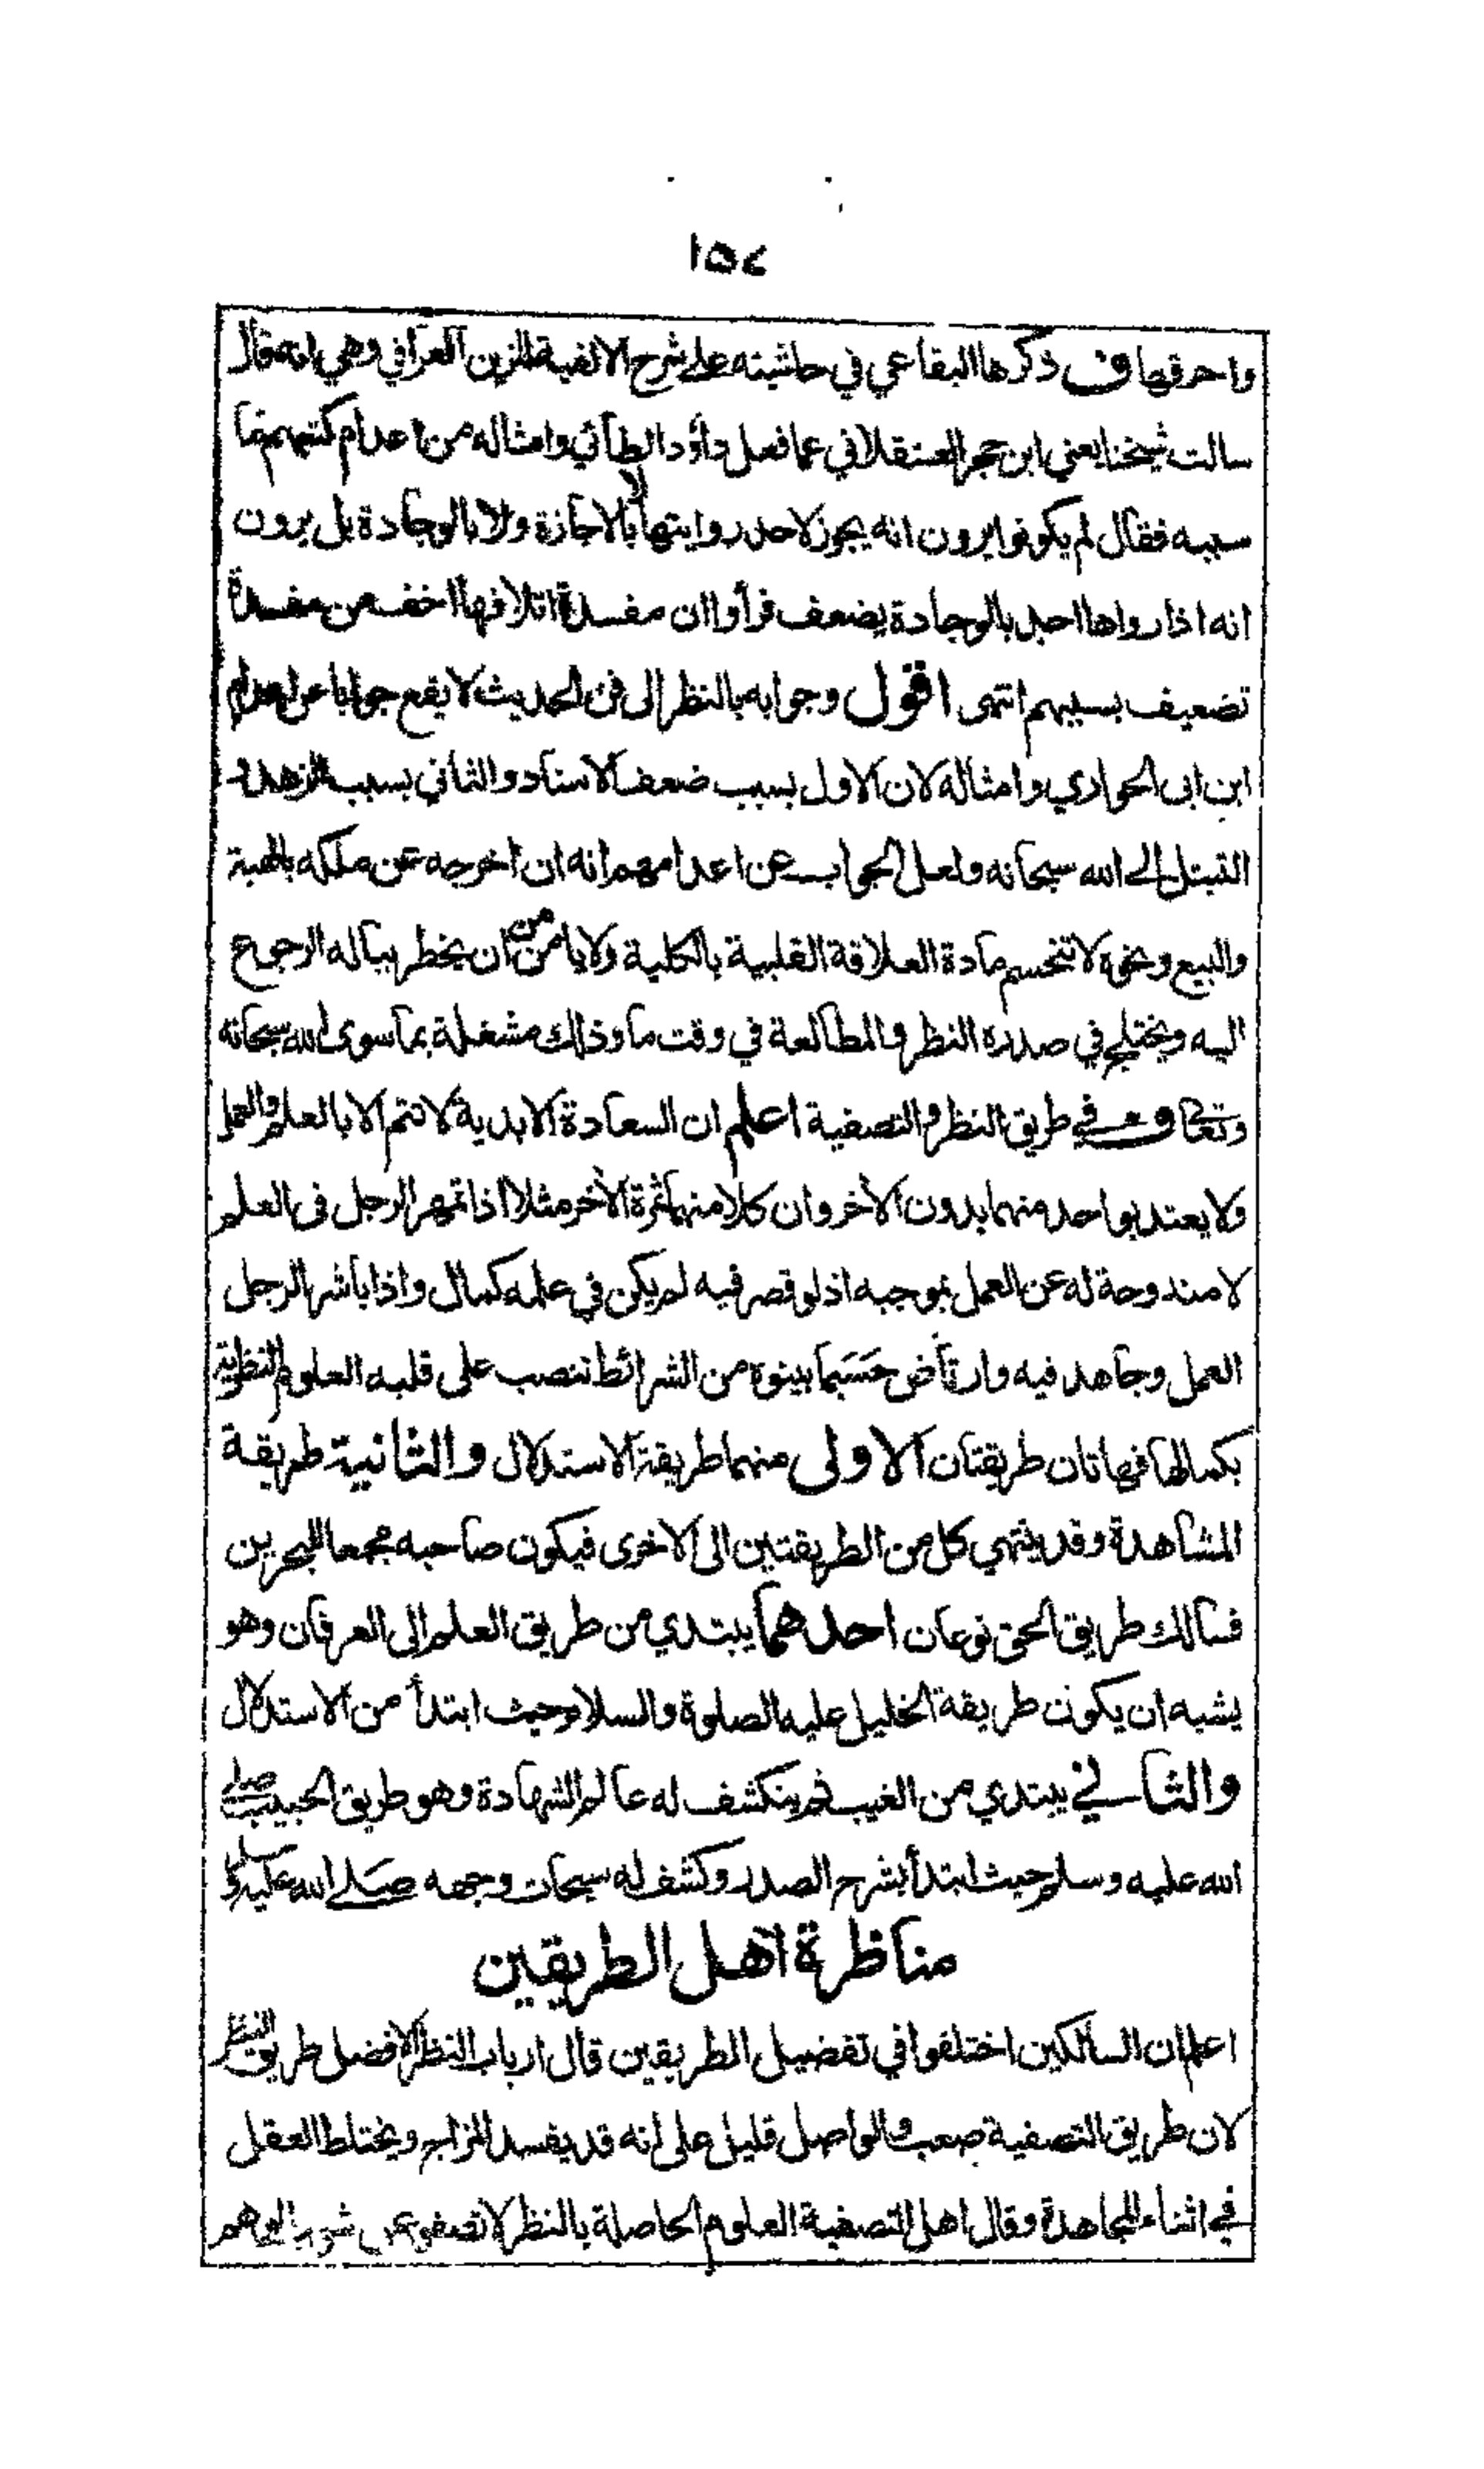 ١٥٤
واحرقها ف ذكرها البقاعي في حاشيته على شرح الالفية للزين العراقي وهي انه قال
سالت شيخنا يعني ابن حجر العسقلاني عما فعل داؤد الطائي وامثاله من اعدام كتبهم ما
سببه فقال لم يكونوا يرون انه يجوز لاحد روايتها لا بالاجازة ولا بالوجادة بل يرون
انه اذا رواها احد بالوجادة يضعف فرأوا ان مفسدة اتلافها اخف من مفسدة
تضعيف بسببهم انتهى اقول وجوابه بالنظر الى فن الحديث لا يقع جوابا عن اعدام
ابن ابى الحوادي وامثاله لان الاول بسبب ضعف الاسناد والثاني بسبب الزهد و
التبتل الى الله سبحانه ولعل الجواب عن اعدامهم انه ان اخرجه عن ملكه بالهبة
والبيع ونحوه لا تنحسم مادة العلاقة القلبية بالكلية ولا يامن من ان يخطر بباله الرجوع
اليه ويختلج في صدره النظر والمطالعة في وقت ما وذلك مشغلة بما سوى الله سبحانه
وتعالى ف في طريق النظر والتصفية اعلم ان السعادة الابدية لا تتم الا بالعلم والعمل
ولا يعتد بواحد منهما بدون الآخر وان كلا منهما ثمرة الآخر مثلا اذا تمهر الرجل فى العلم
لا مندوحة له عن العمل بموجبه اذ لو قصر فيه لم يكن في علمه كمال واذا باشر الرجل
العمل وجاهد فيه وارتاض حسبما بينوه من الشرائط تنصب على قلبه العلوم النظرية
بكمالها فهاتان طريقتان الاولى منهما طريقة الاستدلال والثانية طريقة
المشاهدة وقد ينتهي كل من الطريقتين الى الاخرى فيكون صاحبه مجمعا للبحرين
فسالك طريق الحق نوعان احدهما يبتدي من طريق العلم الى العرفان وهو
يشبه ان يكون طريقة الخليل عليه الصلوة والسلام حيث ابتدأ من الاستدلال
والثاني يبتدي من الغيب ثم ينكشف له عالم الشهادة وهو طريق الحبيب صلى
الله عليه وسلم حيث ابتدأ بشرح الصدر وكشف له سبحات وجهه صلى الله عليه وسلم
مناظرة اهل الطريقين
اعلم ان السالكين اختلفوا في تفضيل الطريقين قال ارباب النظر الافضل طريق النظر
لان طريق التصفية صعب والواصل قليل على انه قد يفسد المزاج ويختلط العقل
في اثناء المجاهدة وقال اهل التصفية العلوم الحاصلة بالنظر لا تصفو عن شوب الوهم